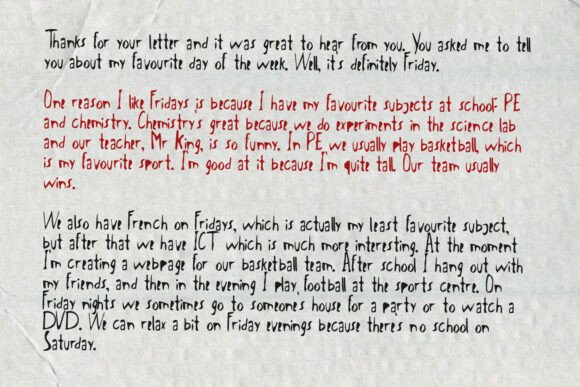 Thanks for your letter and it was great to hear from you. You asked me to tell
you about my favourite day of the week. Well, it's definitely Friday.
One reason I like Fridays is because I have my favourite subjects at school- PE
and chemistry. Chemistry's great because we do experiments in the science lab
and our teacher, Mr King, is so funny. In PE, we usually play basketball, which
is my favourite sport. I'm good at it because I'm quite tall. Our team usually
wins.
We also have French on Fridays, which is actually my least favourite subject,
but after that we have ICT which is much more interesting. At the moment
I'm creating a webpage for our basketball team. After school I hang out with
my friends, and then in the evening I play, football at the sports centre. On
Friday nights we sometimes go to someone's house for a party or to watch a
DVD. We can relax a bit on Friday evenings because there's no school on
Saturday.